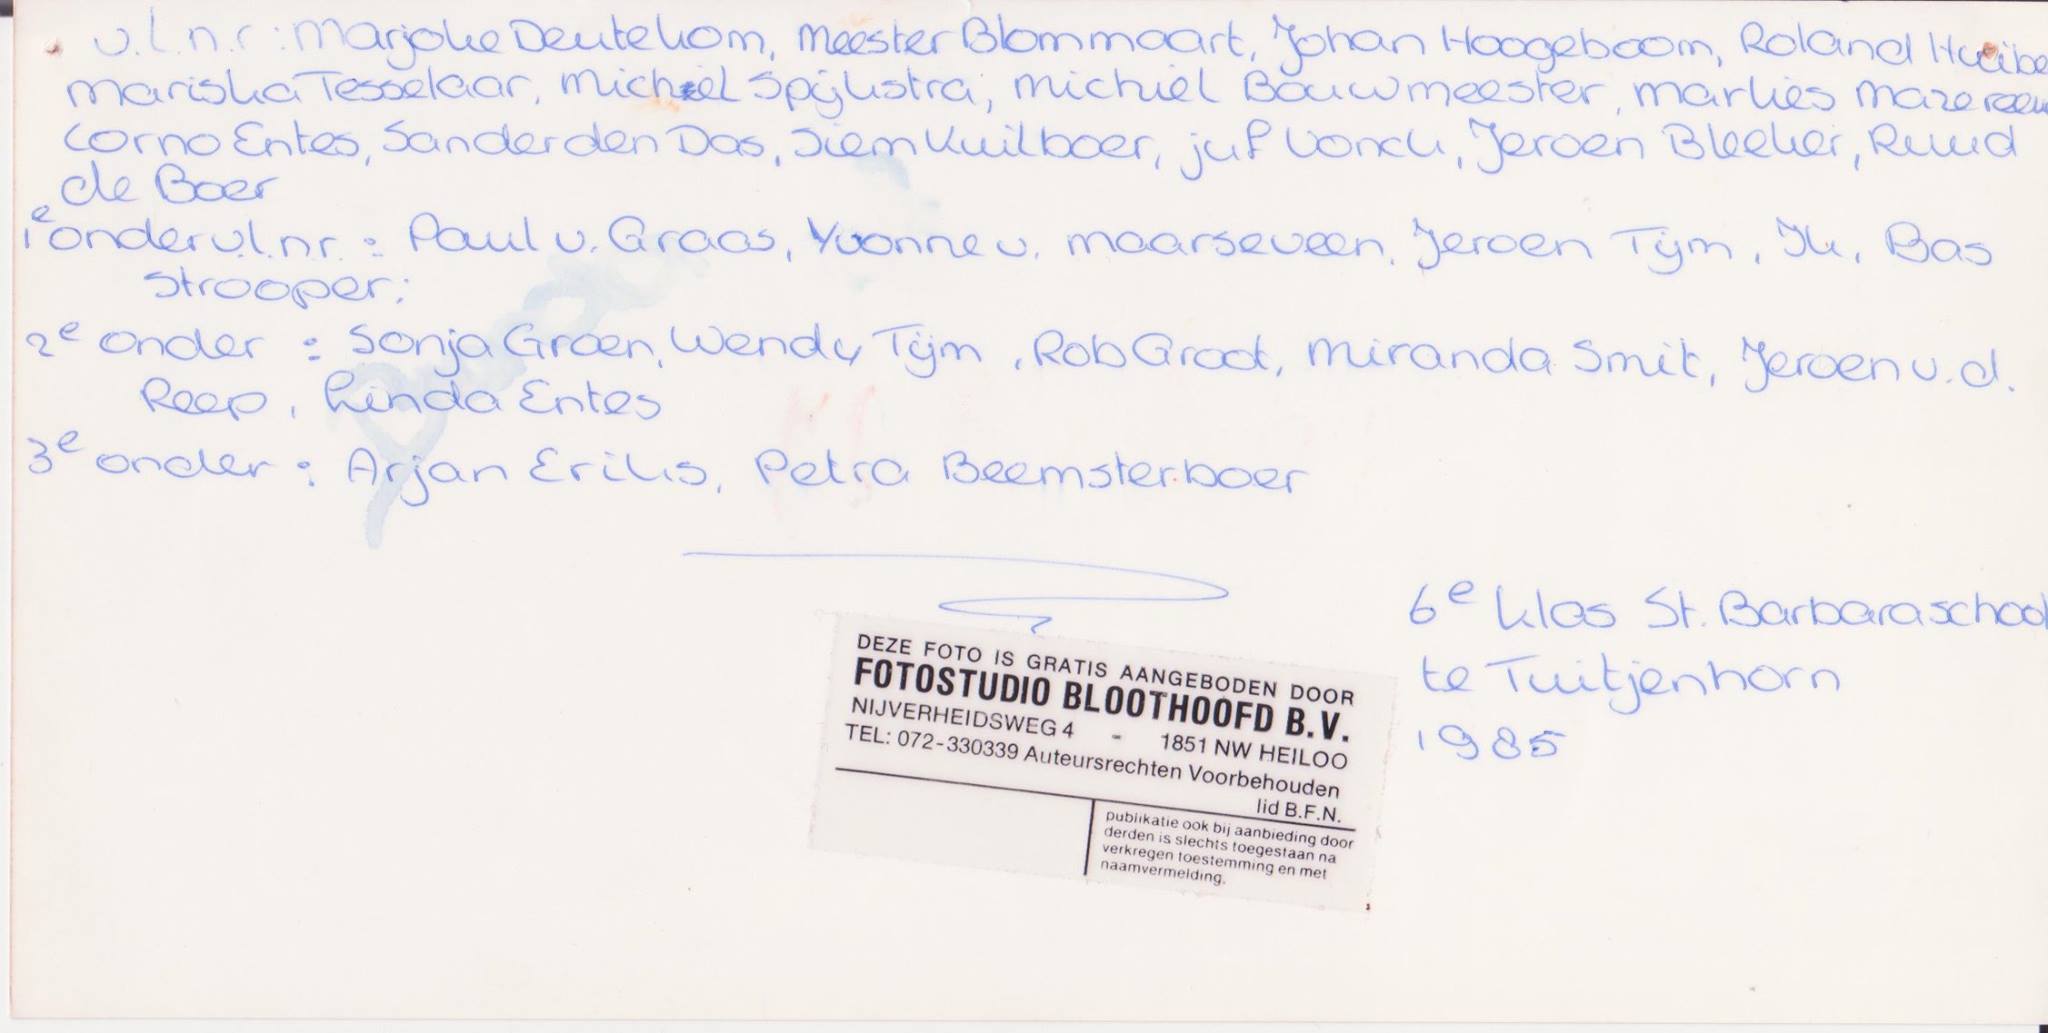 v.l.n.r: Marjoke Deutekom, Meester Blommaart, Johan Hoogeboom, Roland
Mariska Tesselaar, Michiel Spijkstra, Michiel Bouwmeester, Marlies
Corno Entes, Sander den Das, Siem Kuilboer, juf Vonck, Jeroen Bleeker, Ruud
de Boer
1e onder v.l.n.r. : Paul v. Graas, Yvonne v. Maarseveen, Jeroen Tijm, Ik, Bas
Strooper;
2e onder : Sonja Groen, Wendy Tijm, Rob Groot, Miranda Smit, Jeroen v.d.
Reep, Linda Entes
3e onder : Arjan Eriks, Petra Beemsterboer
6e klas St. Barbaraschool
te Tuitjenhorn
1985
DEZE FOTO IS GRATIS AANGEBODEN DOOR
FOTOSTUDIO BLOOTHOOFD B.V.
NIJVERHEIDSWEG 4 - 1851 NW HEILOO
TEL: 072-330339 Auteursrechten Voorbehouden
lid B.F.N.
publikatie ook bij aanbieding door
derden is slechts toegestaan na
verkregen toestemming en met
naamvermelding.